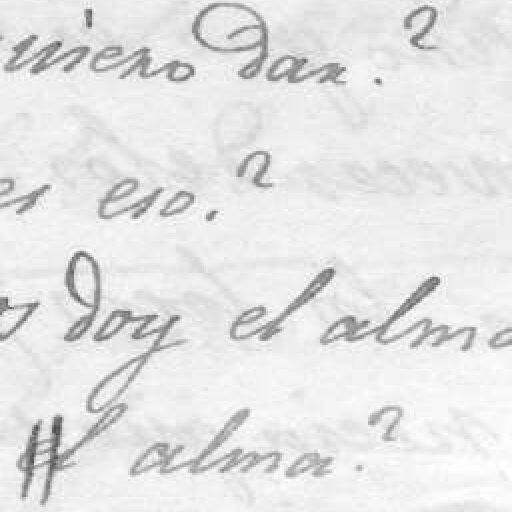 quiero dar.?
es eso.?
os doy el alma
el alma.?